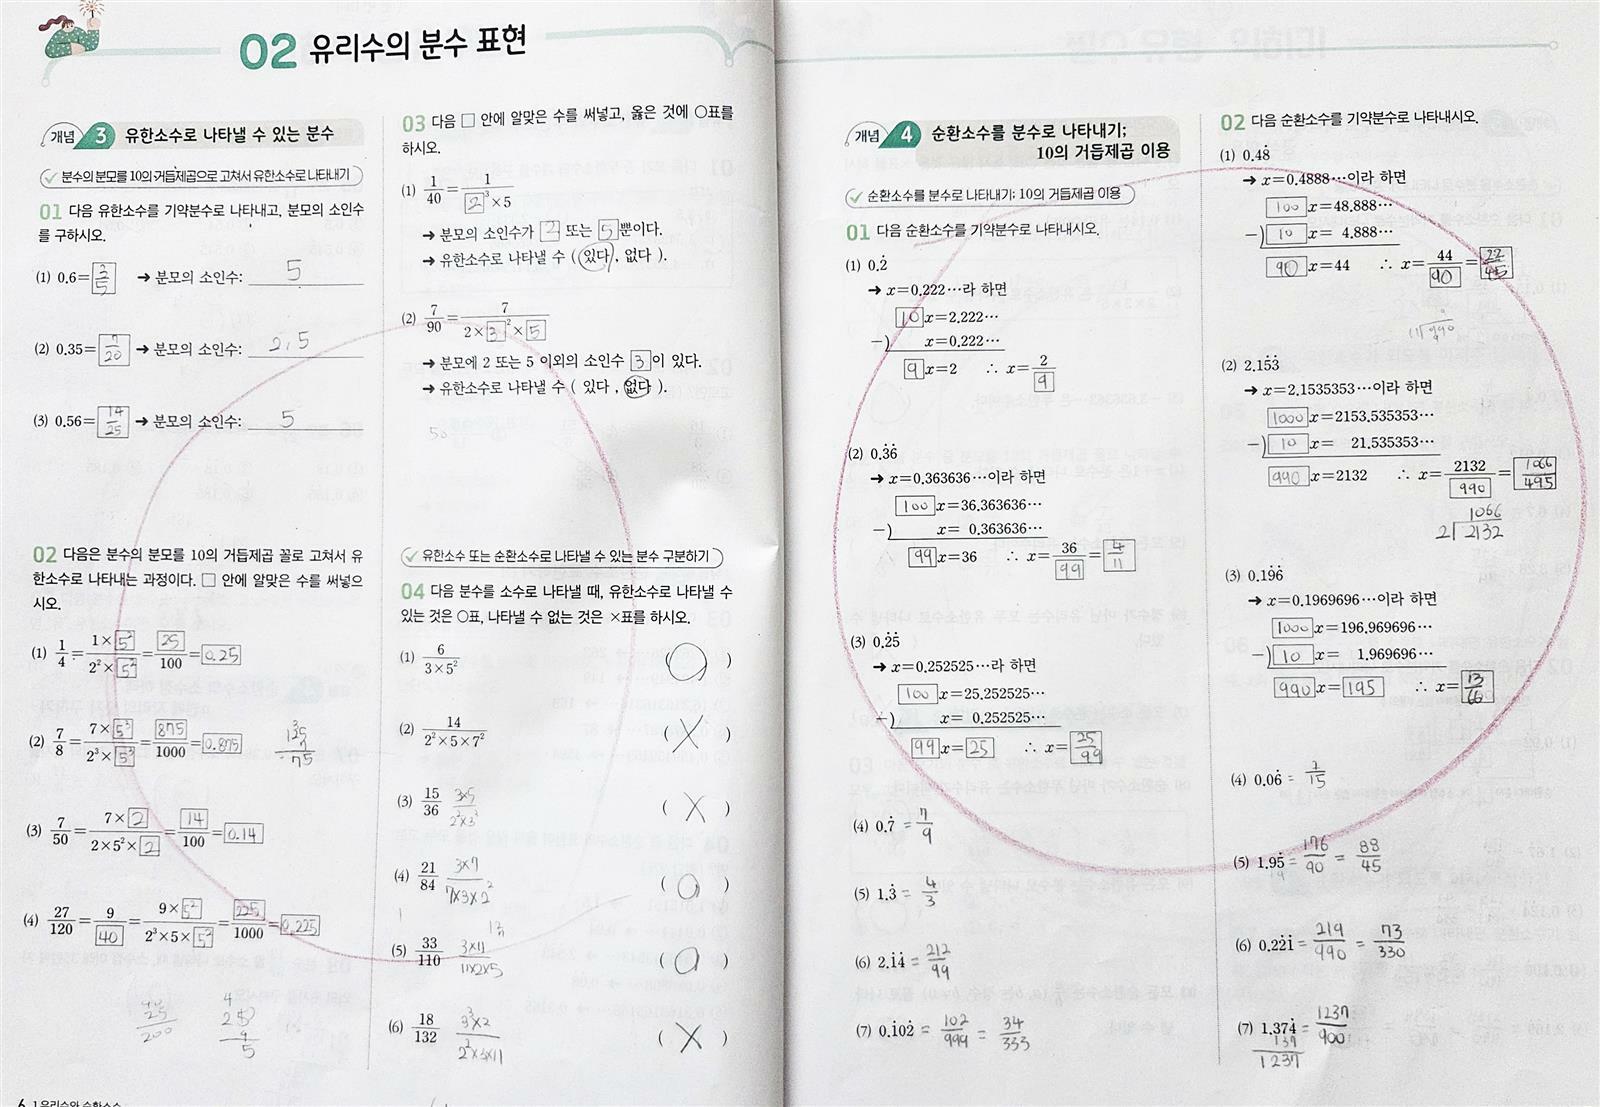 02 유리수의 분수 표현
개념 3 유한소수로 나타낼 수 있는 분수
분수의 분모를 10의 거듭제곱으로 고쳐서 유한소수로 나타내기
01 다음 유한소수를 기약분수로 나타내고, 분모의 소인수
를 구하시오.
(1) 0.6=3/5 → 분모의 소인수: 5
(2) 0.35=7/20 → 분모의 소인수: 2, 5
(3) 0.56=14/25 → 분모의 소인수: 5
02 다음은 분수의 분모를 10의 거듭제곱 꼴로 고쳐서 유
한소수로 나타내는 과정이다. □ 안에 알맞은 수를 써넣으
시오.
(1) 1/4=(1×5²)/(2²×5²)=25/100=0.25
(2) 7/8=(7×5³)/(2³×5³)=875/1000=0.875
(3) 7/50=(7×2)/(2×5²×2)=14/100=0.14
(4) 27/120=9/40=(9×5²)/(2³×5×5²)=225/1000=0.225
03 다음 □ 안에 알맞은 수를 써넣고, 옳은 것에 ○표를
하시오.
(1) 1/40=1/(2³×5)
→ 분모의 소인수가 2 또는 5뿐이다.
→ 유한소수로 나타낼 수 ( 있다 , 없다 ).
(2) 7/90=7/(2×3²×5)
→ 분모에 2 또는 5 이외의 소인수 3이 있다.
→ 유한소수로 나타낼 수 ( 있다 , 없다 ).
50
유한소수 또는 순환소수로 나타낼 수 있는 분수 구분하기
04 다음 분수를 소수로 나타낼 때, 유한소수로 나타낼 수
있는 것은 ○표, 나타낼 수 없는 것은 ×표를 하시오.
(1) 6/(3×5²) ( ○ )
(2) 14/(2²×5×7²) ( × )
(3) 15/36 (3×5)/(2²×3²) ( × )
(4) 21/84 (3×7)/(7×3×2²) ( ○ )
(5) 33/110 (3×11)/(11×2×5) ( ○ )
(6) 18/132 (3²×2)/(2²×3×11) ( × )
개념 4 순환소수를 분수로 나타내기;
10의 거듭제곱 이용
순환소수를 분수로 나타내기; 10의 거듭제곱 이용
01 다음 순환소수를 기약분수로 나타내시오.
(1) 0.2̇
→ x=0.222…라 하면
10x=2.222…
−) x=0.222…
9x=2 ∴ x=2/9
(2) 0.3̇6̇
→ x=0.363636…이라 하면
100x=36.363636…
−) x= 0.363636…
99x=36 ∴ x=36/99=4/11
(3) 0.2̇5̇
→ x=0.252525…라 하면
100x=25.252525…
−) x= 0.252525…
99x=25 ∴ x=25/99
(4) 0.7̇ = 7/9
(5) 1.3̇ = 4/3
(6) 2.1̇4̇ = 212/99
(7) 0.1̇02̇ = 102/999 = 34/333
02 다음 순환소수를 기약분수로 나타내시오.
(1) 0.48̇
→ x=0.4888…이라 하면
100x=48.888…
−) 10x= 4.888…
90x=44 ∴ x=44/90=22/45
(2) 2.15̇3̇
→ x=2.1535353…이라 하면
1000x=2153.535353…
−) 10x= 21.535353…
990x=2132 ∴ x=2132/990=1066/495
1066
2)2132
(3) 0.19̇6̇
→ x=0.1969696…이라 하면
1000x=196.969696…
−) 10x= 1.969696…
990x=195 ∴ x=13/66
(4) 0.06̇ = 1/15
(5) 1.95̇ = 176/90 = 88/45
(6) 0.22̇1̇ = 219/990 = 73/330
(7) 1.374̇ = 1237/900
137
1237